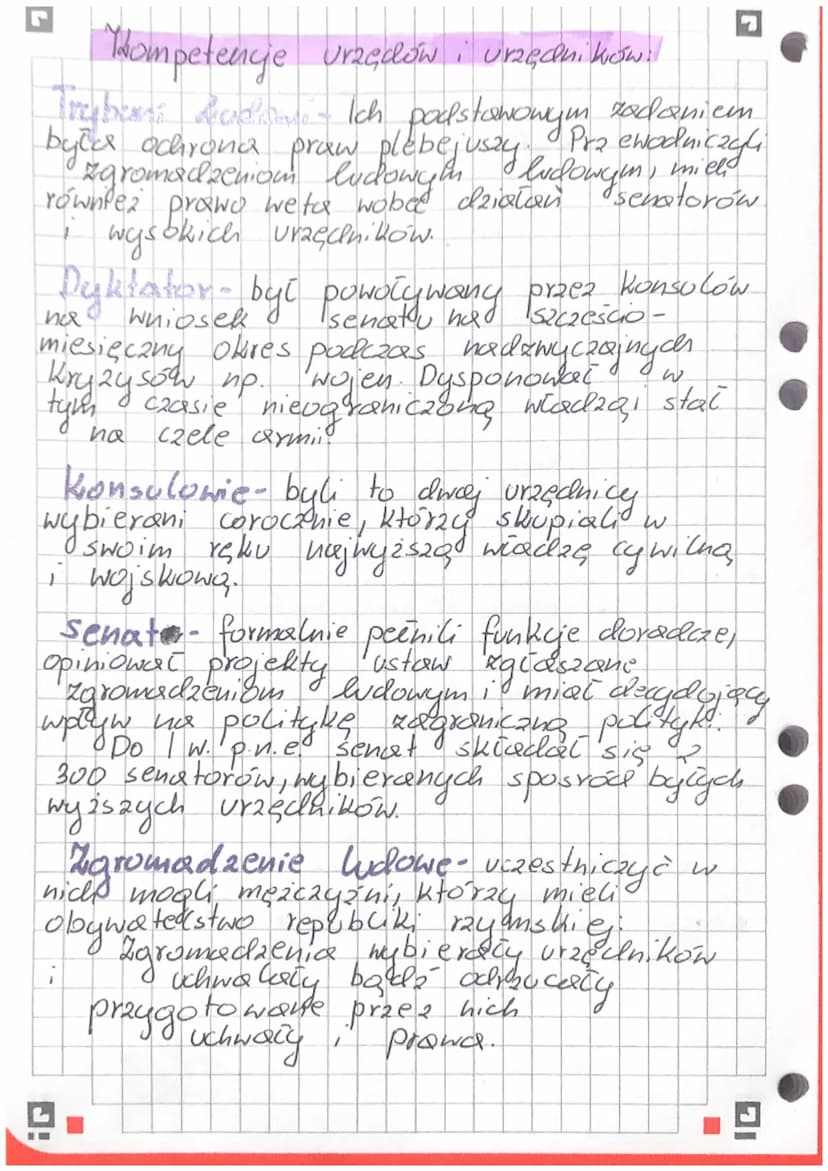 Kompetencje urzędów i urzędników:
Trybuni ludowi - Ich podstawowym zadaniem
była ochrona praw plebejuszy. Przewodniczyli
zgromadzeniom ludowym ludowym, mieli
również prawo weta wobec działań senatorów
i wysokich urzędników.
Dyktator - był powoływany przez konsulów
na wniosek senatu na sześcio-
miesięczny okres podczas nadzwyczajnych
kryzysów np. wojen. Dysponował w
tym czasie nieograniczoną władzą i stał
na czele armii.
Konsulowie - byli to dwaj urzędnicy
wybierani corocznie, którzy skupiali w
swoim ręku najwyższą władzę cywilną
i wojskową.
Senat - formalnie pełnili funkcje doradcze,
opiniował projekty ustaw zgłaszane
zgromadzeniom ludowym i miał decydujący
wpływ na politykę zagraniczną polityki.
Do I w. p.n.e. senat składał się z
300 senatorów, wybieranych spośród byłych
wyższych urzędników.
Zgromadzenie ludowe - uczestniczyć w
nich mogli mężczyźni, którzy mieli
obywatelstwo republiki rzymskiej.
Zgromadzenia wybierały urzędników
i uchwalały bądź odrzucały
przygotowane przez nich
uchwały i prawa.